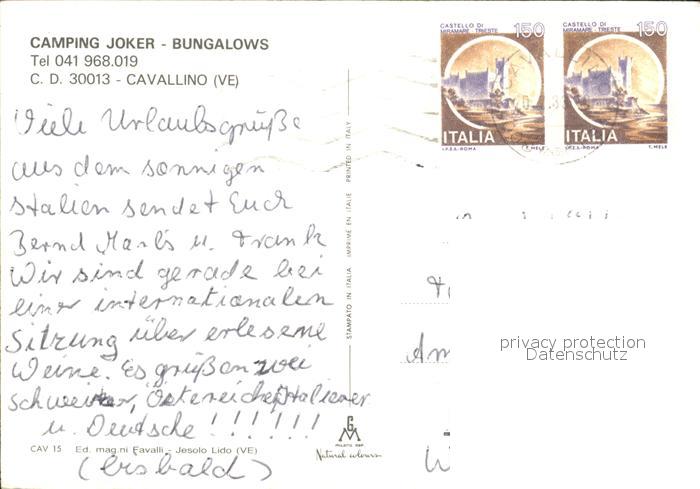 CAMPING JOKER - BUNGALOWS
Tel 041 968.019
C. D. 30013 - CAVALLINO (VE)
Viele Urlaubsgrüße
aus dem sonnigen
Italien sendet Euch
Bernd u. Frank
Wir sind gerade bei
einer internationalen
Sitzung über erlesene
Weine. Es grüßen zwei
Schweitzer, Östereicher, Italiener
u. Deutsche !!!!!!
(bisbald)
CAV 15 Ed. mag.ni Favalli - Jesolo Lido (VE)
STAMPATO IN ITALIA IMPRIMÉ EN ITALIE PRINTED IN ITALY
GM
Natural colours
CASTELLO DI
MIRAMARE - TRIESTE 150
ITALIA
I.P.Z.S.-ROMA T. MELE
CASTELLO DI
MIRAMARE - TRIESTE 150
ITALIA
I.P.Z.S.-ROMA T. MELE
Am
privacy protection
Datenschutz